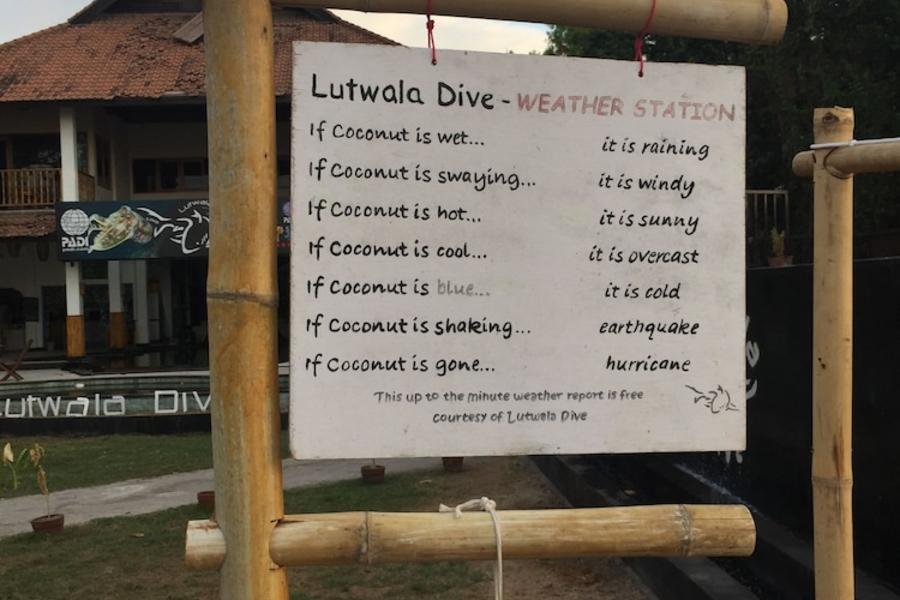 Lutwala Dive - WEATHER STATION
If Coconut is wet... it is raining
If Coconut is swaying... it is windy
If Coconut is hot... it is sunny
If Coconut is cool... it is overcast
If Coconut is blue... it is cold
If Coconut is shaking... earthquake
If Coconut is gone... hurricane
This up to the minute weather report is free
courtesy of Lutwala Dive
PADI
Lutwala Div